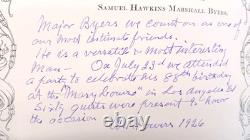 SAMUEL HAWKINS MARSHALL BYERS.
Major Byers we count on as one of
our most intimate friends.
He is a versatile & most interesting
man - On July 23d we attended
a party to celebrate his 88th birthday
at the "Mary Louise" in Los Angeles
Sixty guests were present to honor
the occasion 1926